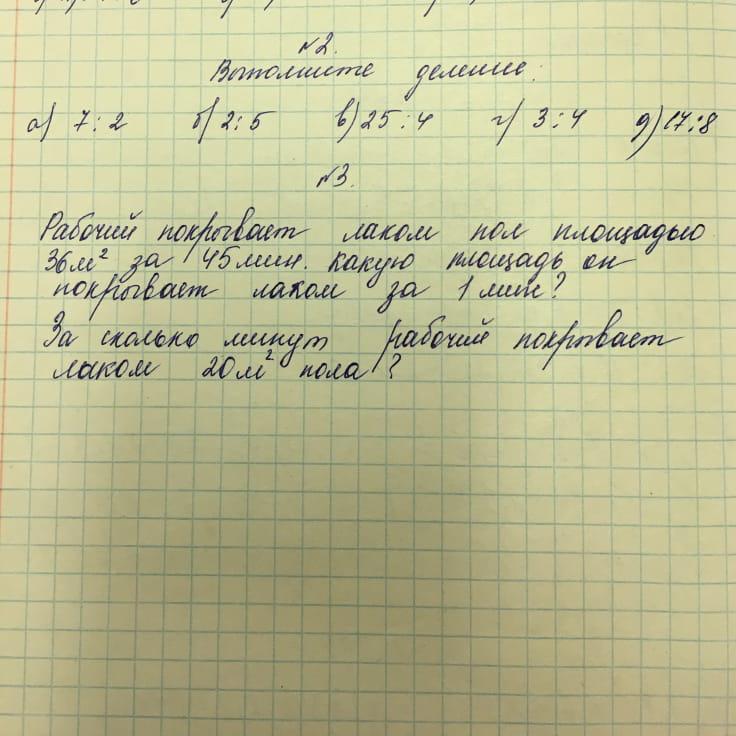 №2.
Выполните деление:
а) 7:2 б) 2:5 в) 25:4 г) 3:4 д) 17:8
№3.
Рабочий покрывает лаком пол площадью
36м² за 45мин. Какую площадь он
покрывает лаком за 1 мин?
За сколько минут рабочий покрывает
лаком 20м² пола?